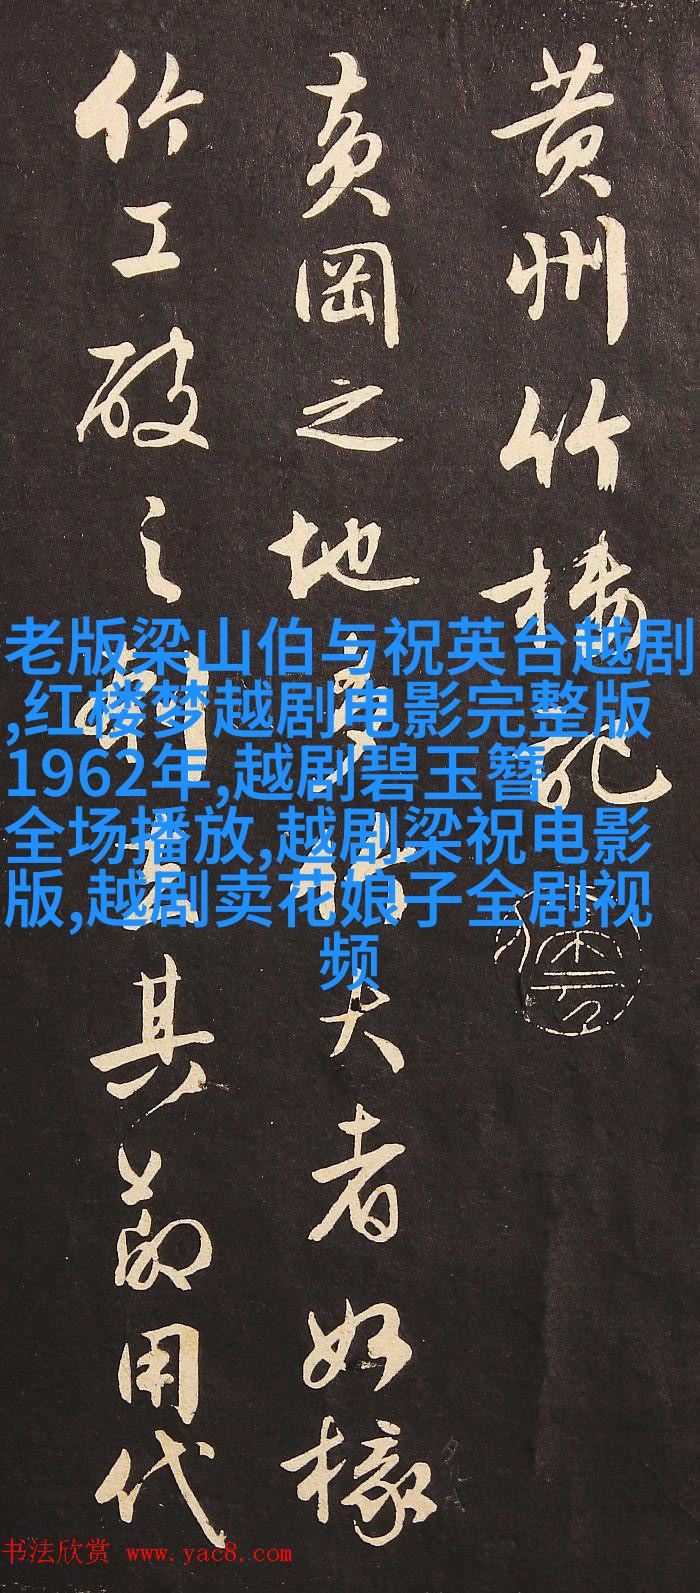 黄州竹楼记
黄冈之地多竹大者如椽
竹工破之刳去其节用代
老版梁山伯与祝英台越剧
,红楼梦越剧电影完整版
1962年,越剧碧玉簪
全场播放,越剧梁祝电影
版,越剧卖花娘子全剧视
频
书法欣赏 www.yac8.com